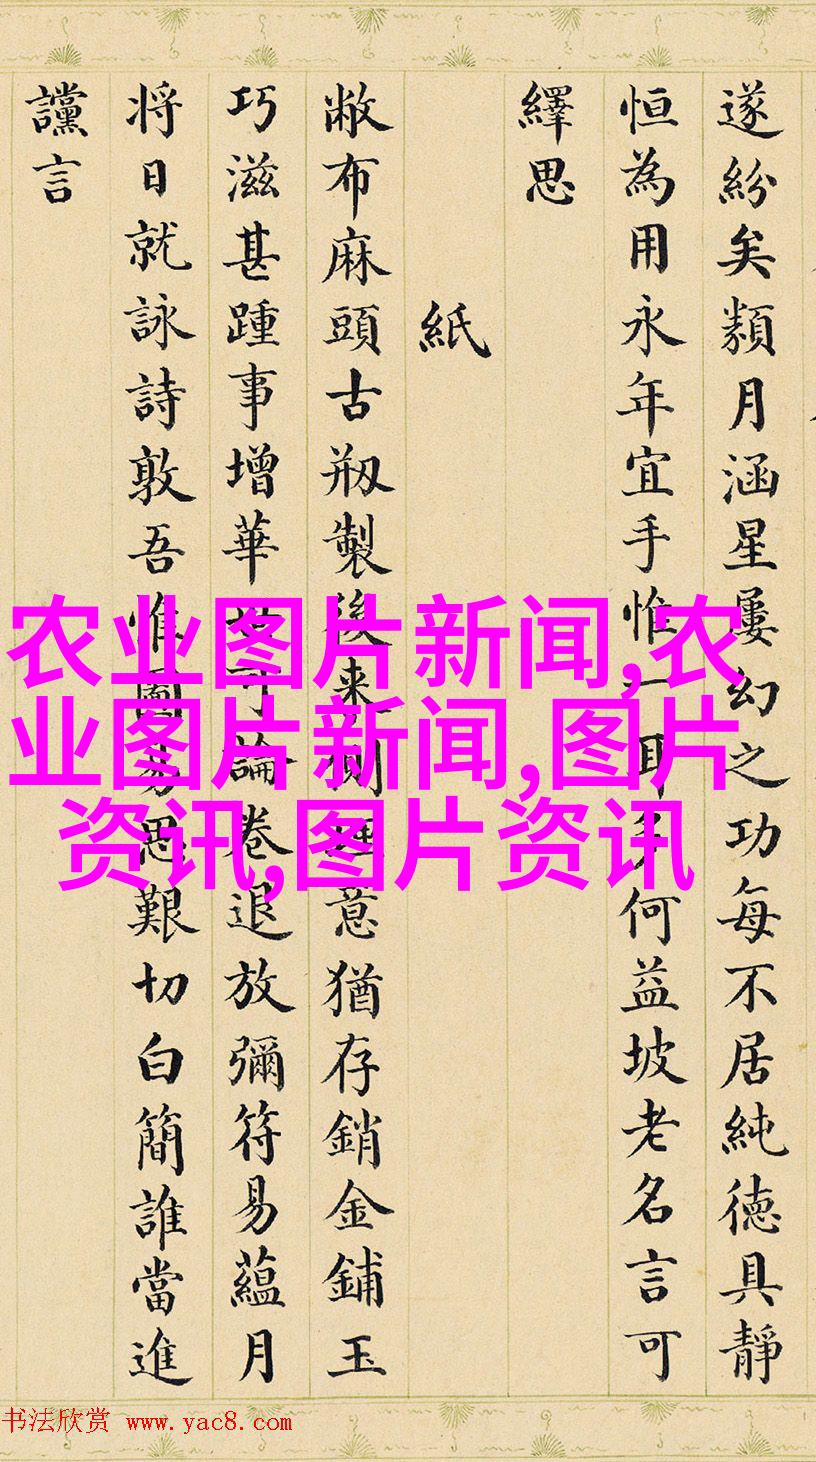 遂紛矣類月涵星屢幻之功每不居純德具靜
恒為用永年宜手惟一耳多何益坡老名言可
繹思
紙
敝布麻頭古剏製後来側理意猶存銷金鋪玉
巧滋甚踵事增華可論卷退放彌符易蘊月
将日就詠詩敦吾惟圖易思艱切白簡誰當進
讜言
农业图片新闻,农
业图片新闻,图片
资讯,图片资讯
书法欣赏 www.yac8.com